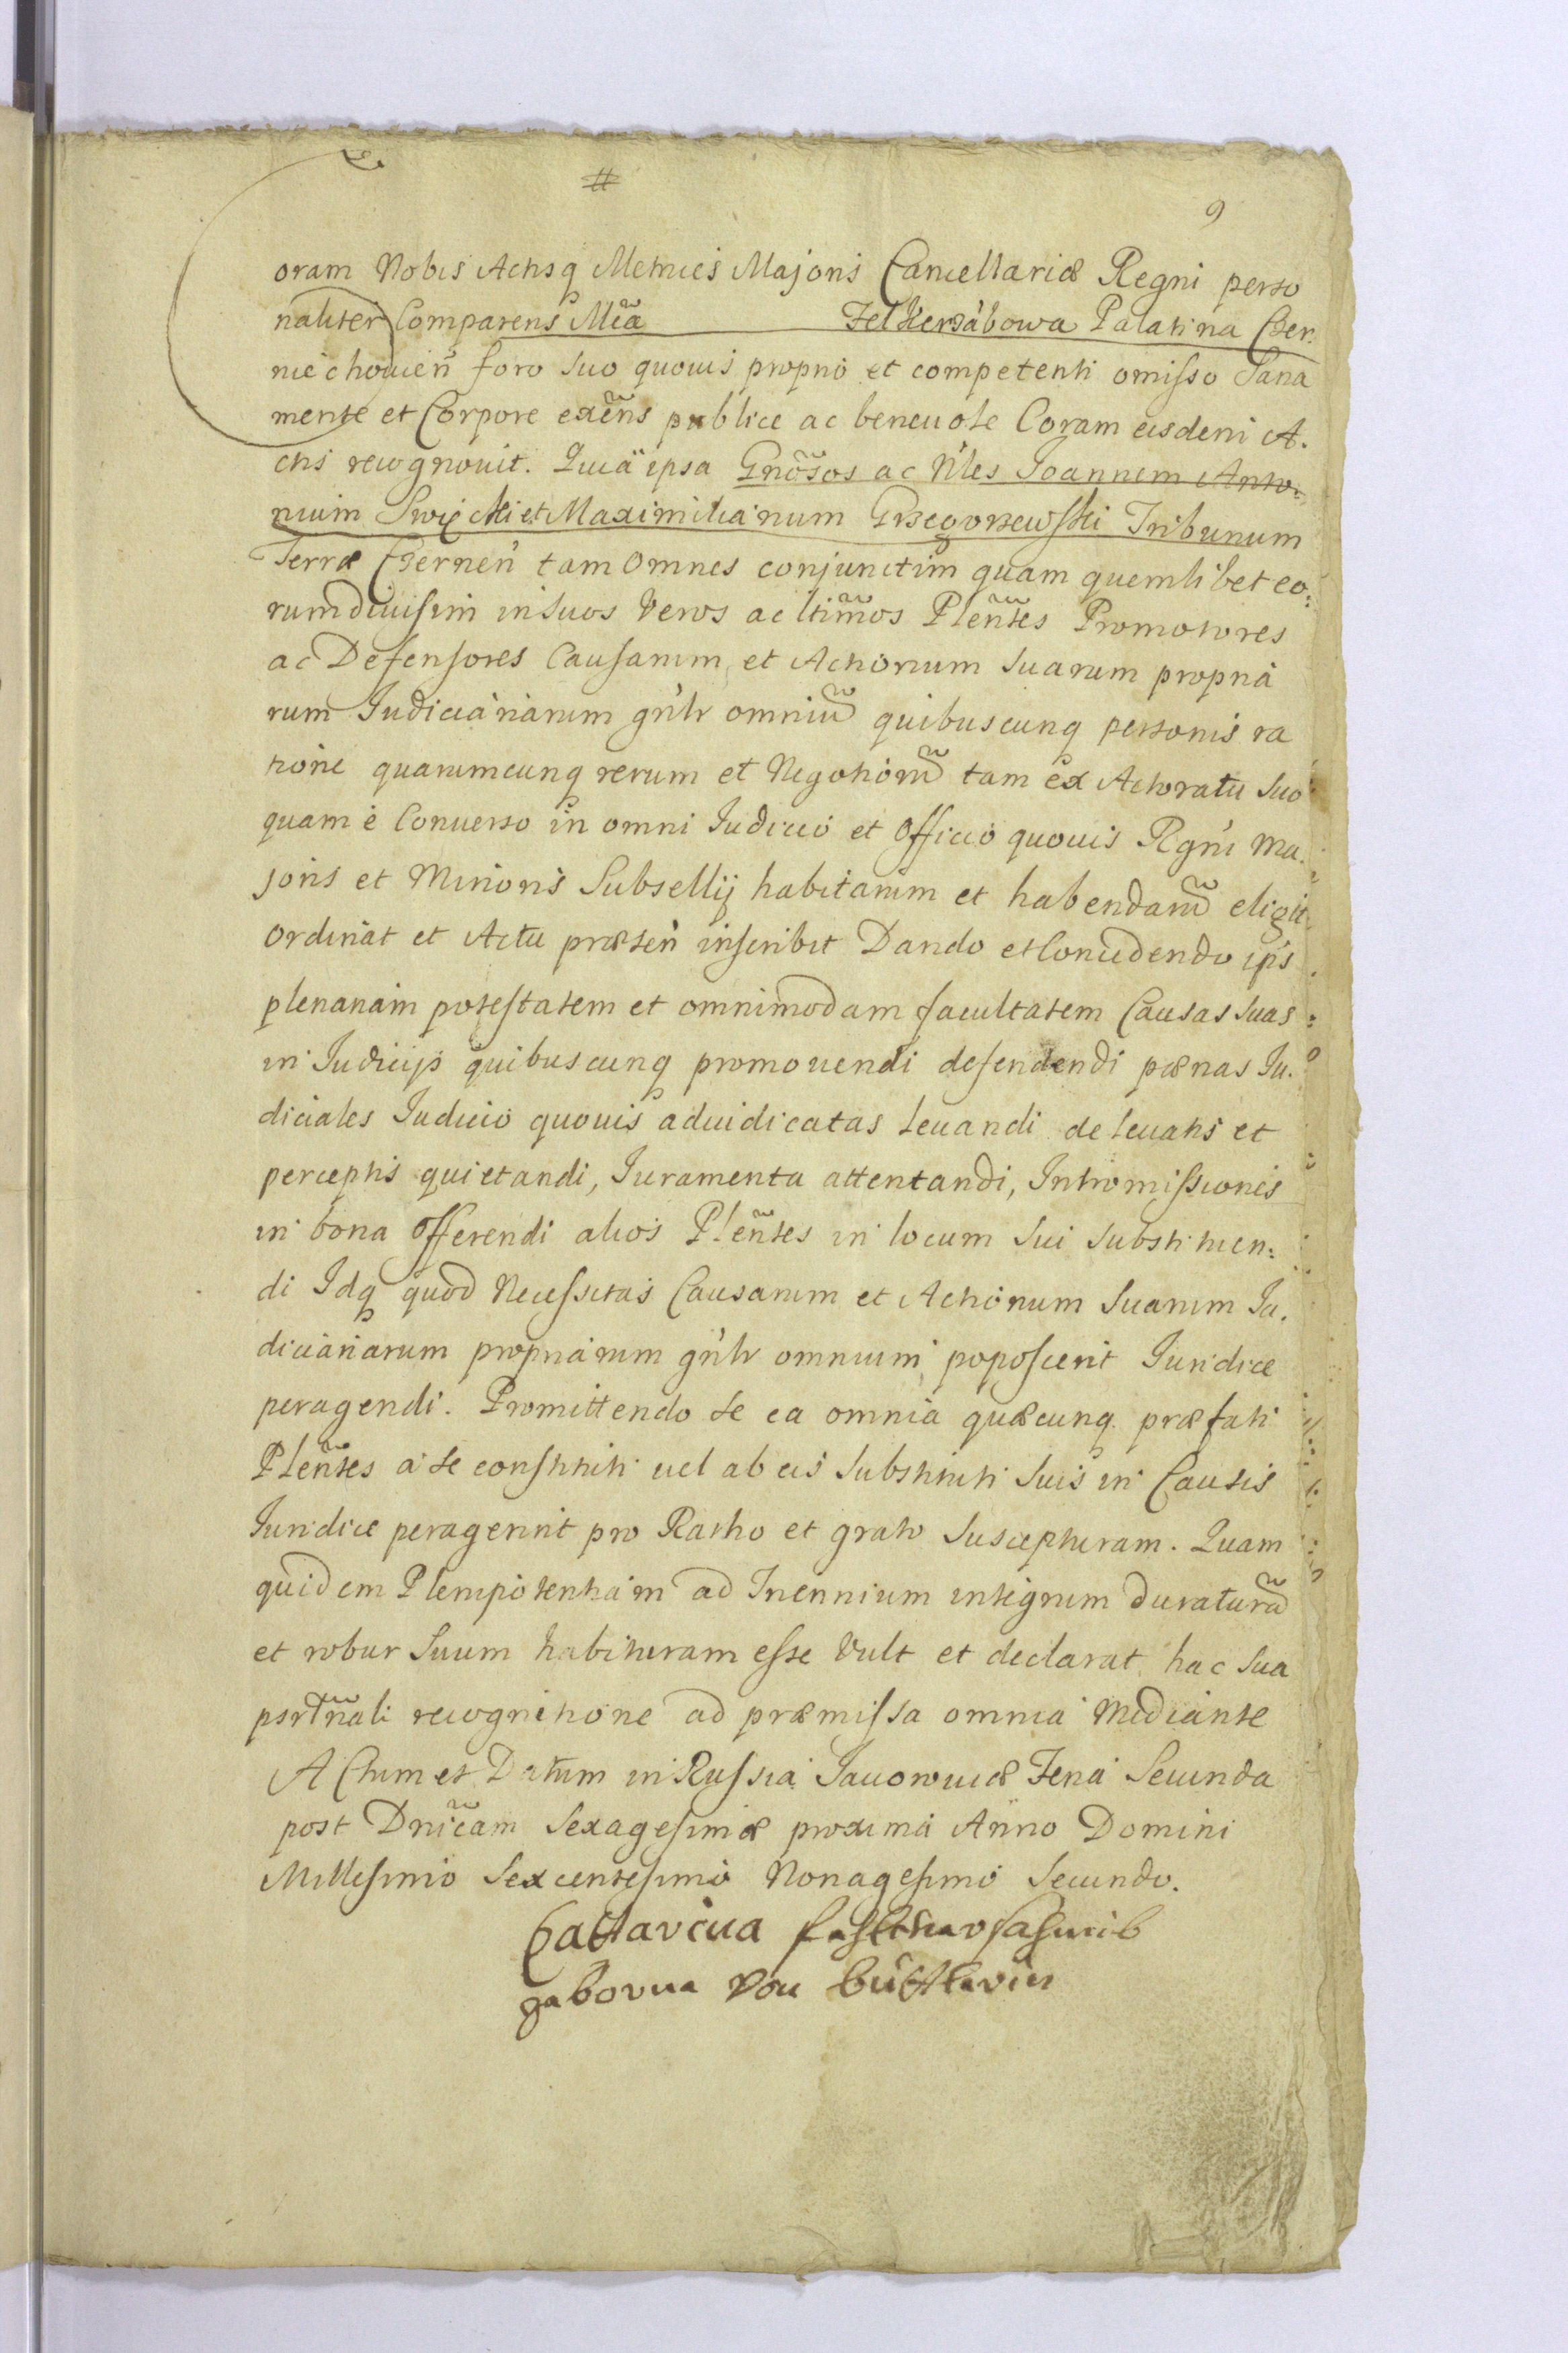 #
9
Coram Nobis Actisq Metrices Majoris Cancellariæ Regni perso
naliter Comparens Mca Felkierzabowa Palatina Czer:
niechowien foro Suo quovis proprio et competenti omisso Sana
mente et Corpore exens publice ac benevole Coram eisdem A.
ctis recognovit. Quia ipsa Gnosos ac Nles Joannem Anto:
nium Swięcki et Maximilianum Grzegorzewski Tribunum
Terræ Czernen tam Omnes conjunctim quam quemlibet eo:
rum divisim in Suos Veros ac ltimos Plentes Promotores
ac Defensores Causarum et Actionum Suarum propria
rum Judiciariarum gnlr omniu quibuscunq personis ra
tione quarumcunq rerum et Negotioru tam ex Actoratu Suo
quam e Converso in omni Judicio et Officio quovis Regni Ma.
joris et Minoris Subsellij habitarum et habendaru eligit
Ordinat et Actu præsen inscribit Dando et Concedendo ips
plenariam potestatem et omnimodam facultatem Causas Suas
in Judicijs quibuscunq promovendi defendendi pænas Ju.
diciales Judicio quovis adiudicatas levandi de levatis et
perceptis quietandi, Juramenta attentandi, Intromissiones
in bona Offerendi alios Plentes in locum Sui Substituen:
di Idq quod Necessitas Causarum et Actionum Suarum Ju.
diciariarum propriarum gnlr omnium poposcerit Juridice
peragendi. Promittendo Se ea omnia quæcunq præfati
Plentes a Se constituti vel ab eis Substituti Suis in Causis
Juridice peragerint pro Ratho et grato Suscepturam. Quam
quidem Plenipotentiam ad Triennium integrum Duratura
et robur Suum habituram esse Vult et declarat hac Sua
psrtnali recognitione ad præmissa omnia Mediante
Actum et Datum in Russia Javoroviæ Feria Secunda
post Dnicam Sexagesimæ proxima Anno Domini
Millesimo Sexcentesimo Nonagesimo Secundo.
von